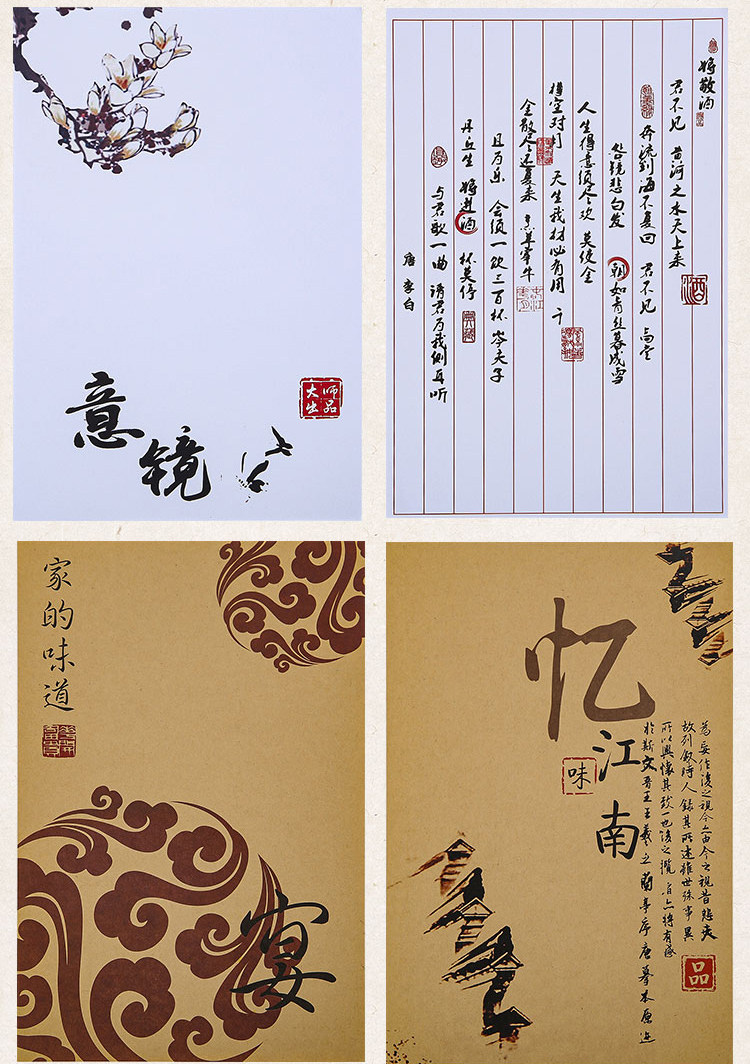 意镜
师品
大生
将敬酒
君不见 黄河之水天上来
酒
奔流到海不复回 君不见 高堂
镜悲白发 朝如青丝暮成雪
人生得意须尽欢 莫使金
樽空对月 天生我材必有用 千
金散尽还复来 烹羊宰牛
且为乐 会须一饮三百杯 岑夫子
丹丘生 将进酒 杯莫停
与君歌一曲 请君为我侧耳听
唐 李白
家的味道
宴
忆江南
味
為妄作後之視今亦由今之視昔悲夫
故列叙時人錄其所述雖世殊事異
所以興懷其致一也後之攬者亦將有感
於斯文晋王王羲之蘭亭序唐摹本原迹
品